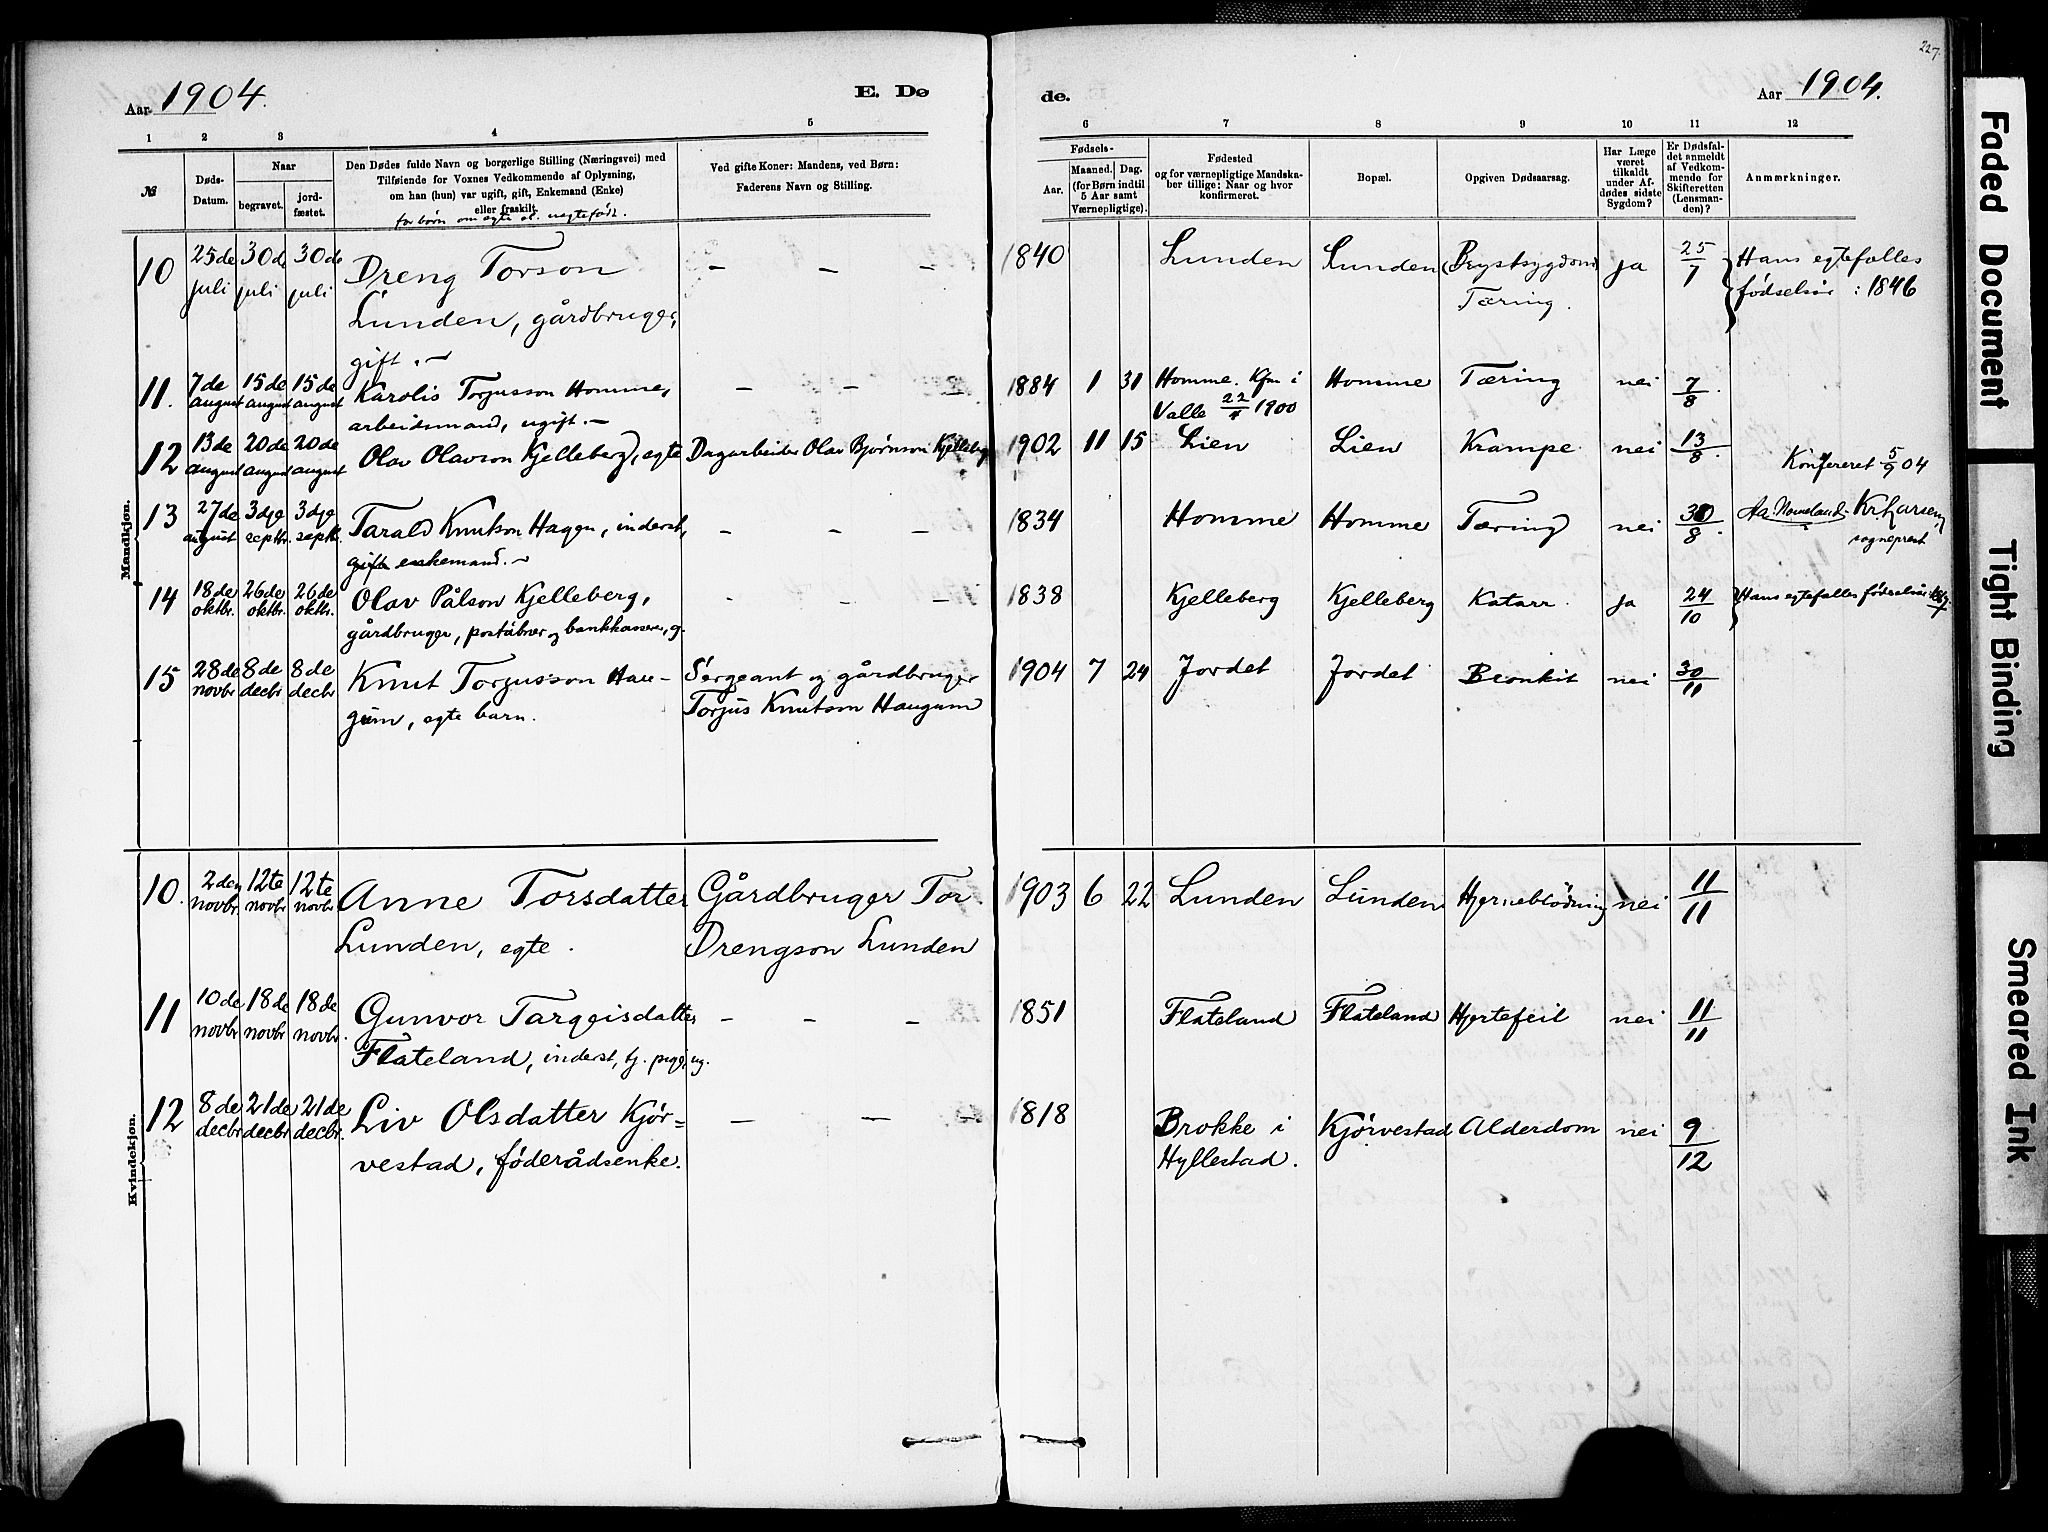 227.
Aar 1904.
E. Dø
de.
Aar 1904.
1 2 3 4 5 6 7 8 9 10 11 12
№
Døds-
Datum.
Naar
begravet.
jord-
fæstet.
Den Dødes fulde Navn og borgerlige Stilling (Næringsvei) med
Tilføiende for Voxnes Vedkommende af Oplysning,
om han (hun) var ugift, gift, Enkemand (Enke)
eller fraskilt.
for børn om egte el. uegtefødt.
Ved gifte Koner: Mandens, ved Børn:
Faderens Navn og Stilling.
Fødsels-
Aar.
Maaned. Dag.
(for Børn indtil
5 Aar samt
Værnepligtige).
Fødested
og for værnepligtige Mandska-
ber tillige: Naar og hvor
konfirmeret.
Bopæl.
Opgiven Dødsaarsag.
Har Læge
været
tilkaldt
under Af-
dødes sidste
Sygdom?
Er Dødsfal-
det anmeldt
af Vedkom-
mende for
Skifteretten
(Lensman-
den)?
Anmærkninger.
Mandkjøn.
10 25de juli 30de juli 30de juli Dreng Torson - - - 1840 Lunden Lunden Brystsygdom ja 25/7 Hans egtefælles
Lunden, gårdbruger, Tæring. fødselsår : 1846
gift. -
11. 7de august 15de august 15de august Karolis Torjusson Homme, - - - 1884 1 31 Homme. Kfm i Homme Tæring nei 7/8.
arbeidsmand, ugift. - Valle 22/4 1900
12 13de august 20de august 20de august Olav Olavson Kjelleberg, egte Dagarbeider Olav Bjørnson Kjelleberg 1902 11 15 Lien Lien Krampe nei 13/8.
Konfereret 5/9 04
13 27de august 3dje septbr. 3dje septbr. Tarald Knutson Hagen, inderst, - - - 1834 Homme Homme Tæring nei 30/8. Aa. Nomeland. Kr. Larsen
gift enkemand. - sogneprest
14 18de oktbr. 26de oktbr. 26de oktbr. Olav Pålson Kjelleberg, - - - 1838 Kjelleberg Kjelleberg Katarr. ja 24/10 Hans egtefælles fødselsår
gårdbruger, poståbner og bankkasserer, g.
15 28de novbr 8de decbr 8de decbr Knut Torjusson Hau- Sergeant og gårdbruger 1904 7 24 Jordet Jordet Bronkit nei 30/11
gum, egte barn. Torjus Knutson Haugum
Kvindekjøn.
10. 2den novbr 12te novbr 12te novbr Anne Torsdatter Gårdbruger Tor 1903 6 22 Lunden Lunden Hjerneblødning nei 11/11
Lunden, egte. Drengson Lunden
11 10de novbr 18de novbr 18de novbr. Gunvor Targeisdatter - - - 1851 Flateland Flateland Hjertefeil nei 11/11
Flateland, inderst, tj. pige, ug.
12 8de decbr 21de decbr 21de decbr. Liv Olsdatter Kjør= - - - 1818 Brokke i Kjørvestad Alderdom nei 9/12
vestad, føderådsenke. Hyllestad.
Faded Document
Tight Binding
Smeared Ink